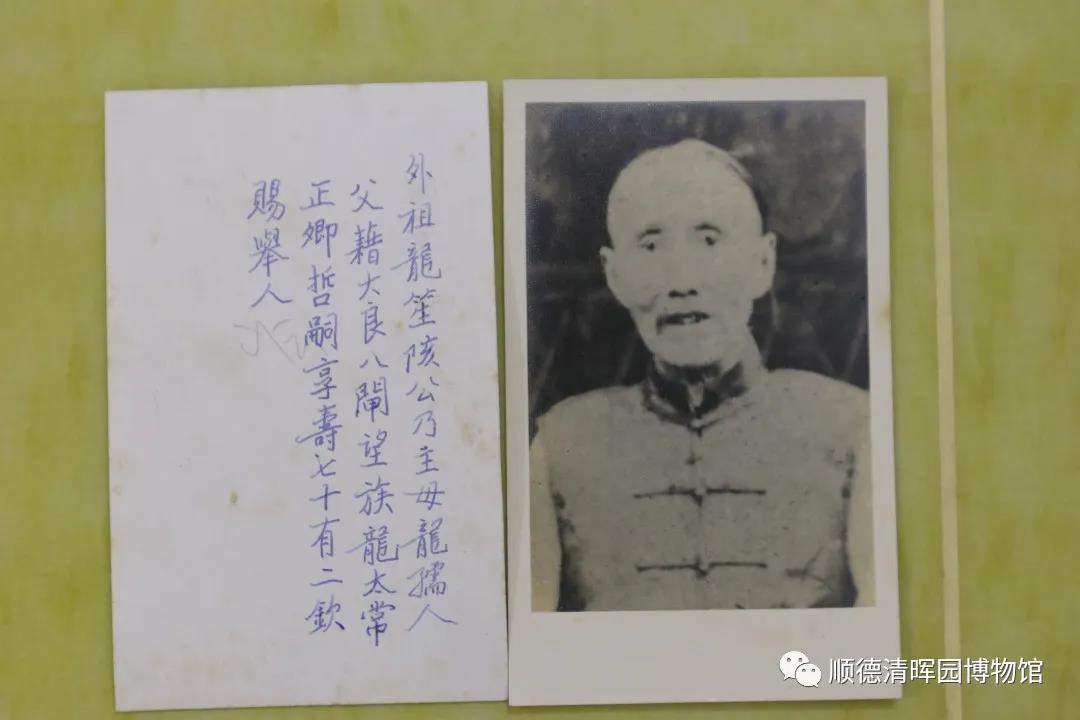 外祖龍笙陔公乃主母龍孺人
父藉大良八閘望族龍太常
正卿哲嗣享壽七十有二欽
賜舉人
顺德清晖园博物馆